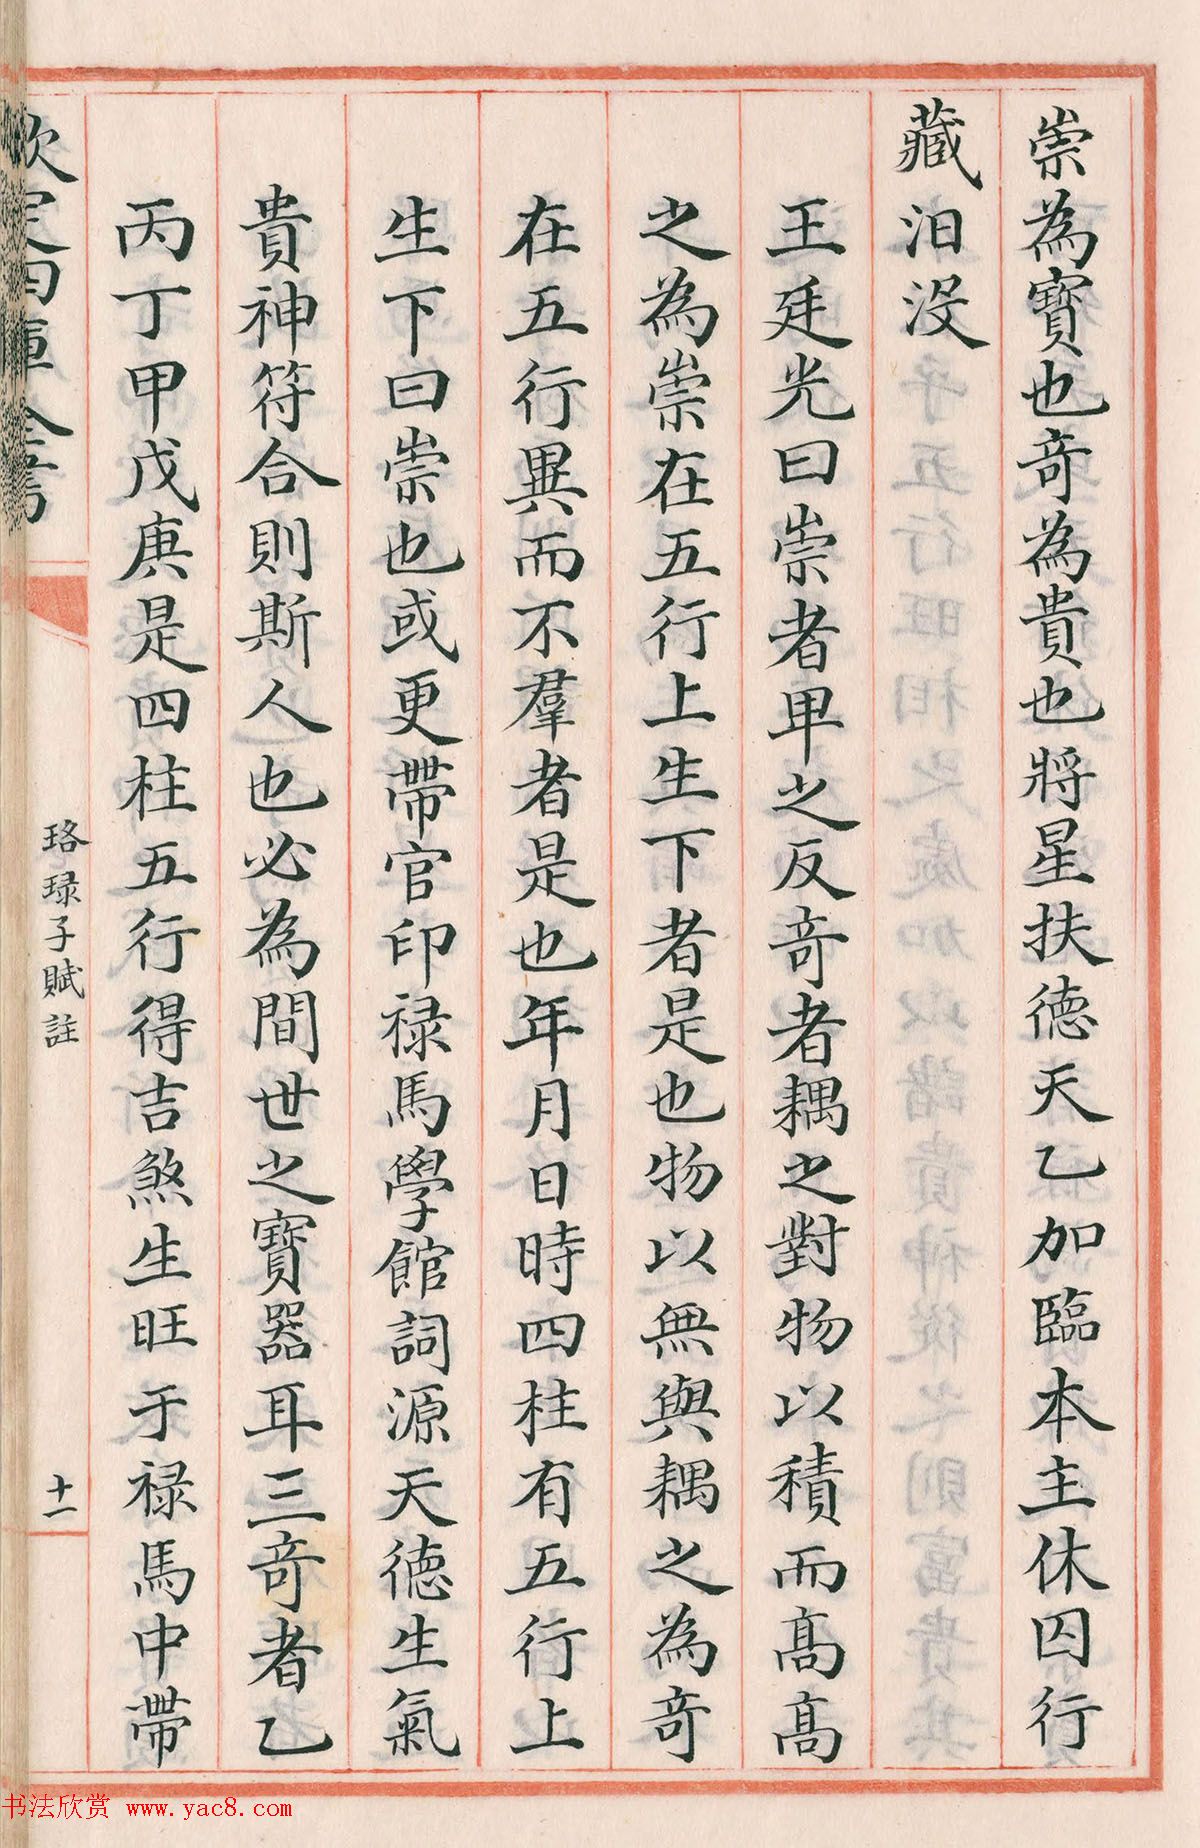 崇為寳也竒為貴也將星扶德天乙加臨本主休囚行
藏汨没
王廷光曰崇者卑之反竒者耦之對物以積而髙髙
之為崇在五行上生下者是也物以無與耦之為竒
在五行異而不羣者是也年月日時四柱有五行上
生下曰崇也或更帶官印禄馬學館詞源天德生氣
貴神符合則斯人也必為間世之寳器耳三竒者乙
丙丁甲戊庚是四柱五行得吉煞生旺于禄馬中帶
欽定四庫全書
珞琭子賦註
十一
书法欣赏 www.yac8.com